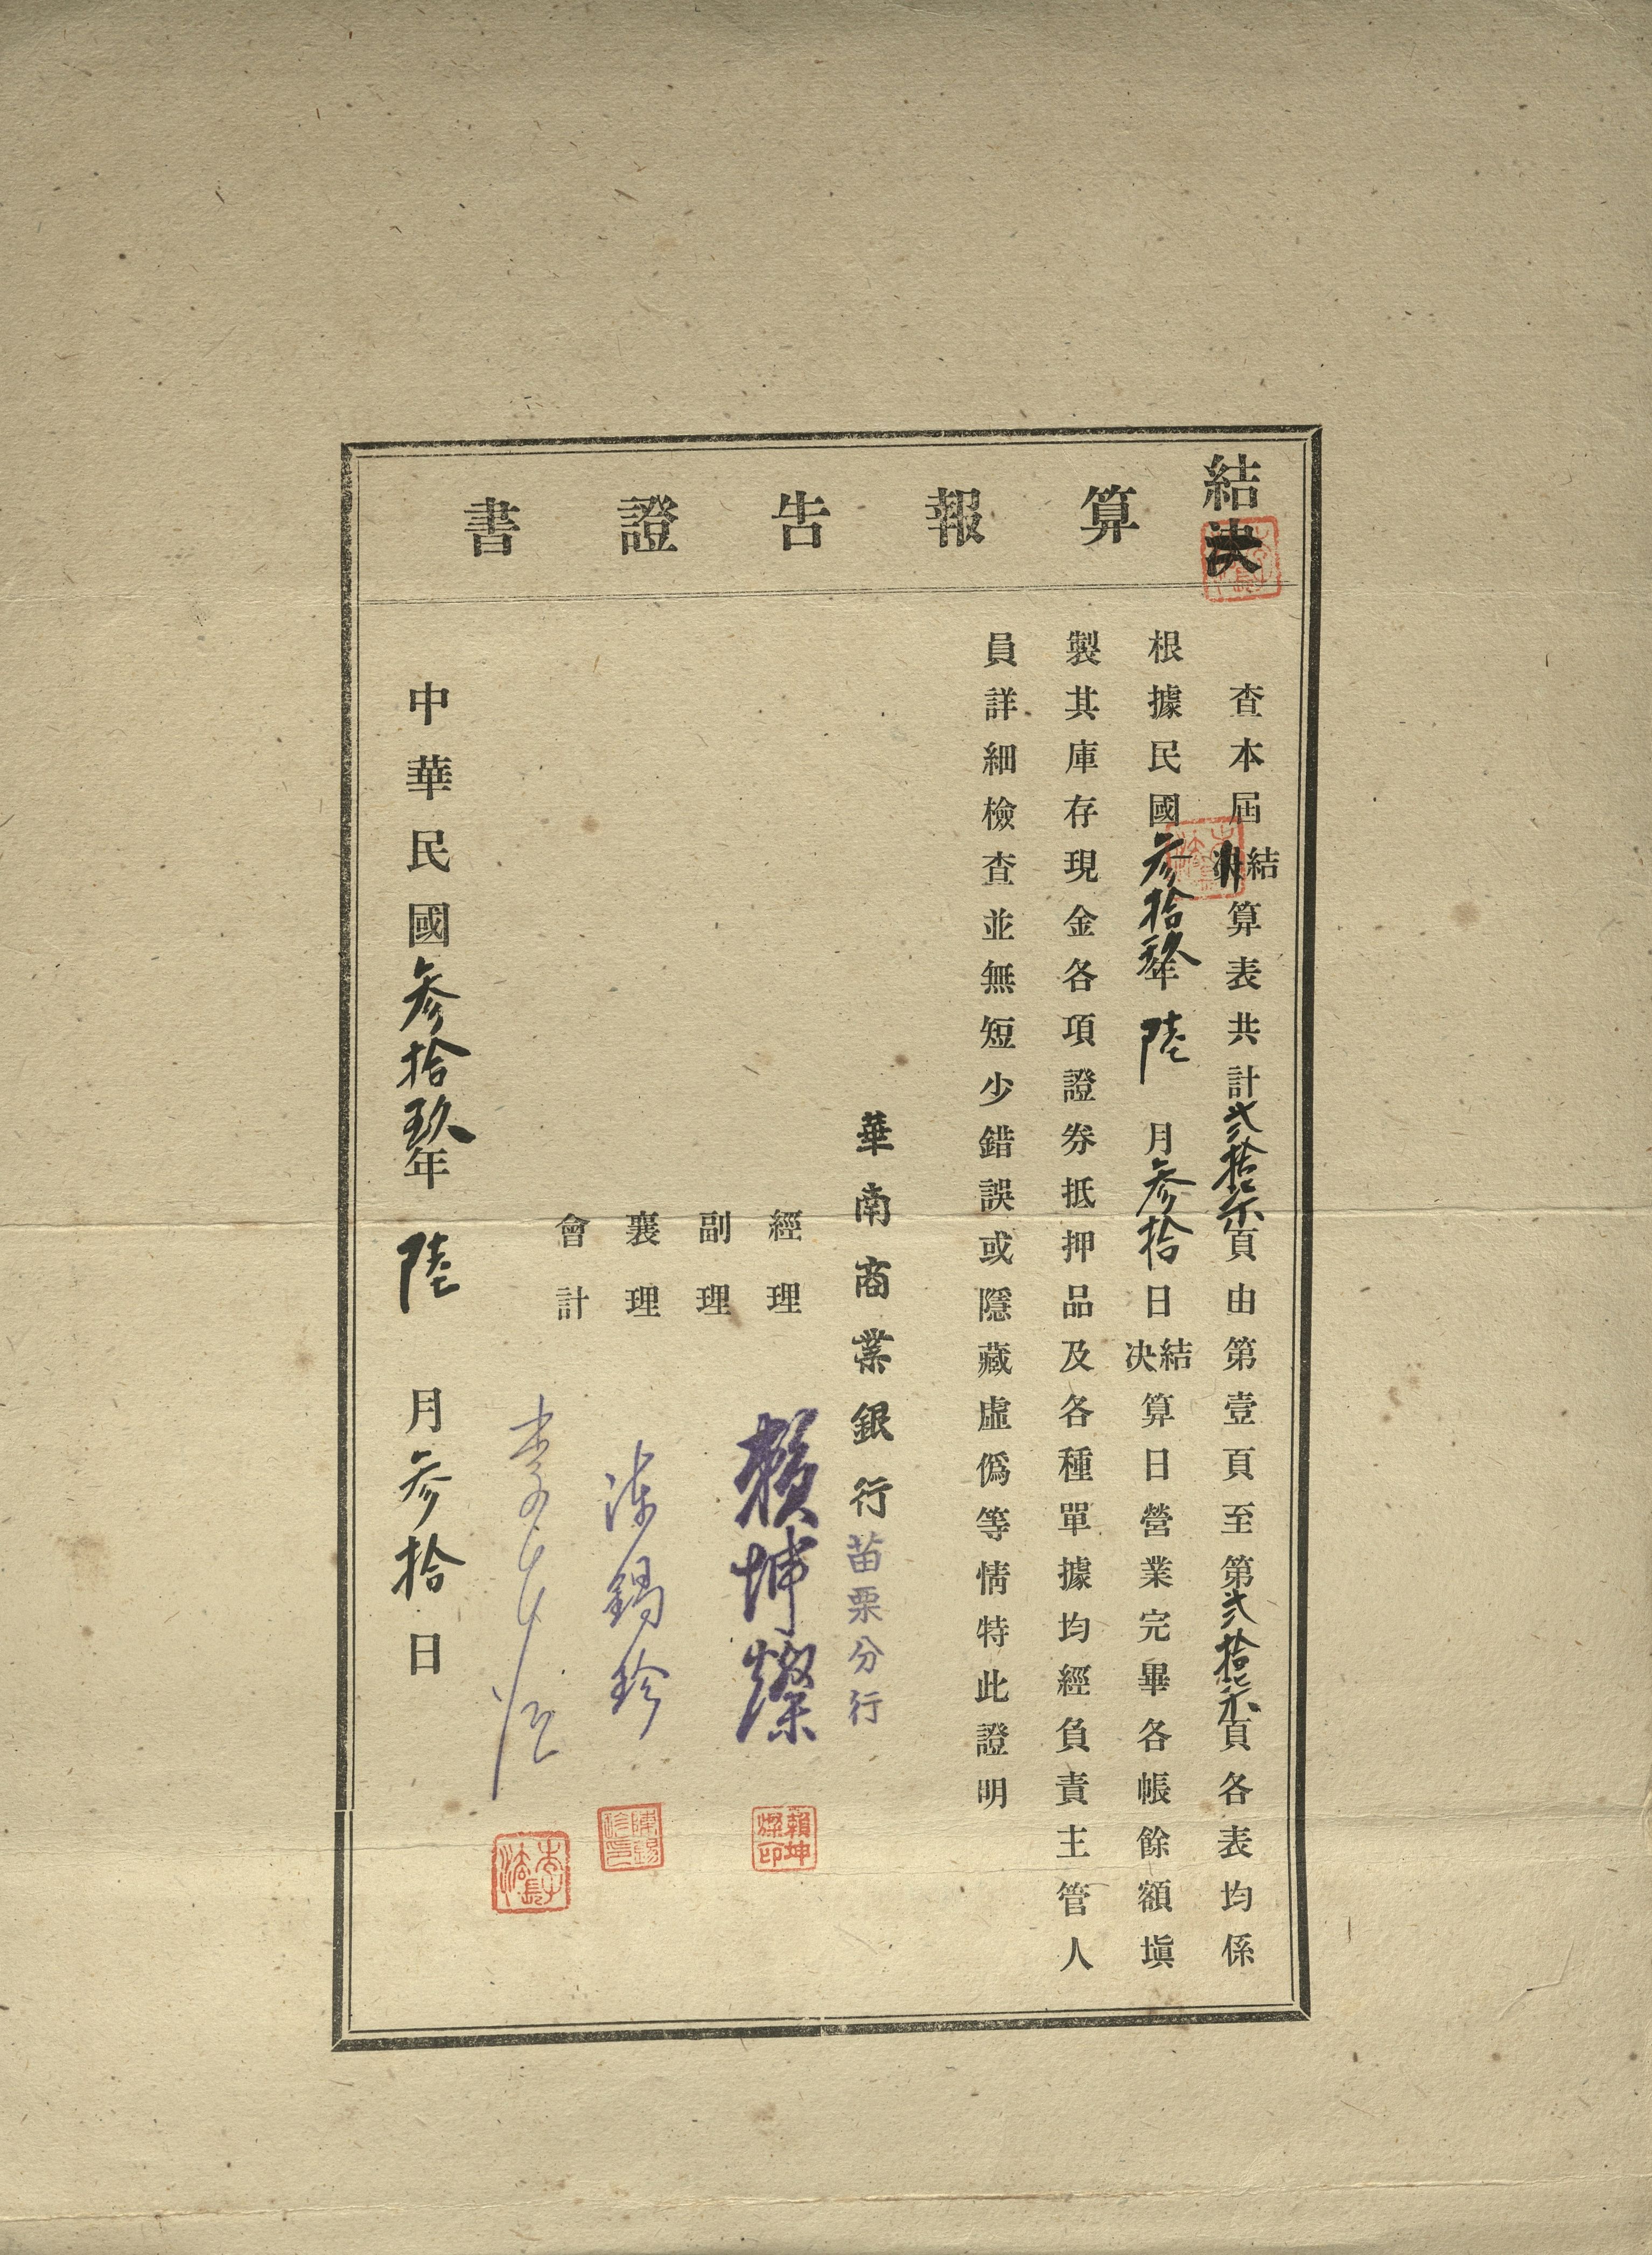 結決算報告證書
查本屆結決算表共計貳拾柒頁由第壹頁至第貳拾柒頁各表均係
根據民國參拾玖年陸月參拾日結決算日營業完畢各帳餘額塡
製其庫存現金各項證券抵押品及各種單據均經負責主管人
員詳細檢查並無短少錯誤或隱藏虛僞等情特此證明
華南商業銀行苗栗分行
經理 賴坤燦 賴坤燦印
副理
襄理 陳錫珍 陳錫珍印
會計 李長法 李長法
中華民國參拾玖年陸月參拾日